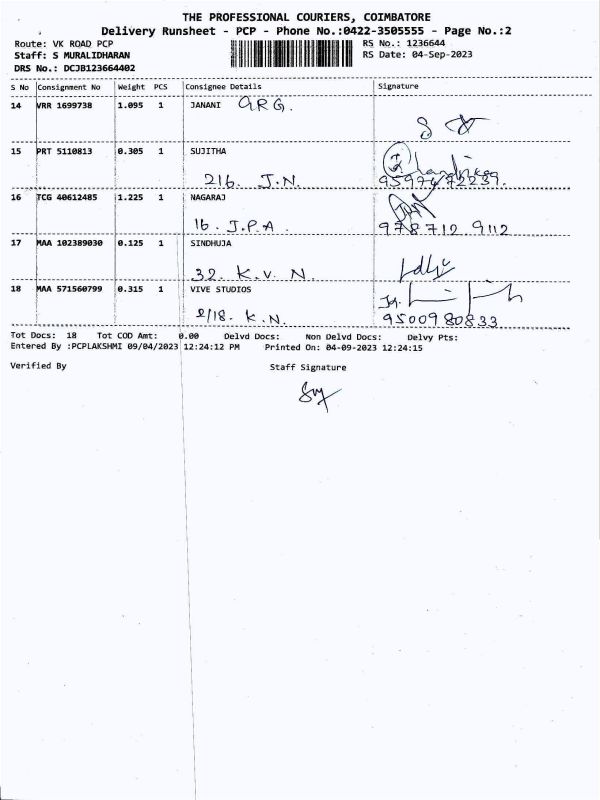 THE PROFESSIONAL COURIERS, COIMBATORE
Delivery Runsheet - PCP - Phone No.:0422-3505555 - Page No.:2
Route: VK ROAD PCP RS No.: 1236644
Staff: S MURALIDHARAN RS Date: 04-Sep-2023
DRS No.: DCJB123664402
S No Consignment No Weight PCS Consignee Details Signature
14 VRR 1699738 1.095 1 JANANI G.R.G.
15 PRT 5110813 0.305 1 SUJITHA
216. J.N.
16 TCG 40612485 1.225 1 NAGARAJ
16. J.P.A. 978712 9112
17 MAA 102389030 0.125 1 SINDHUJA
32. K.V. N.
18 MAA 571560799 0.315 1 VIVE STUDIOS
2/18. K.N. 9500980833
Tot Docs: 18 Tot COD Amt: 0.00 Delvd Docs: Non Delvd Docs: Delvy Pts:
Entered By :PCPLAKSHMI 09/04/2023 12:24:12 PM Printed On: 04-09-2023 12:24:15
Verified By Staff Signature